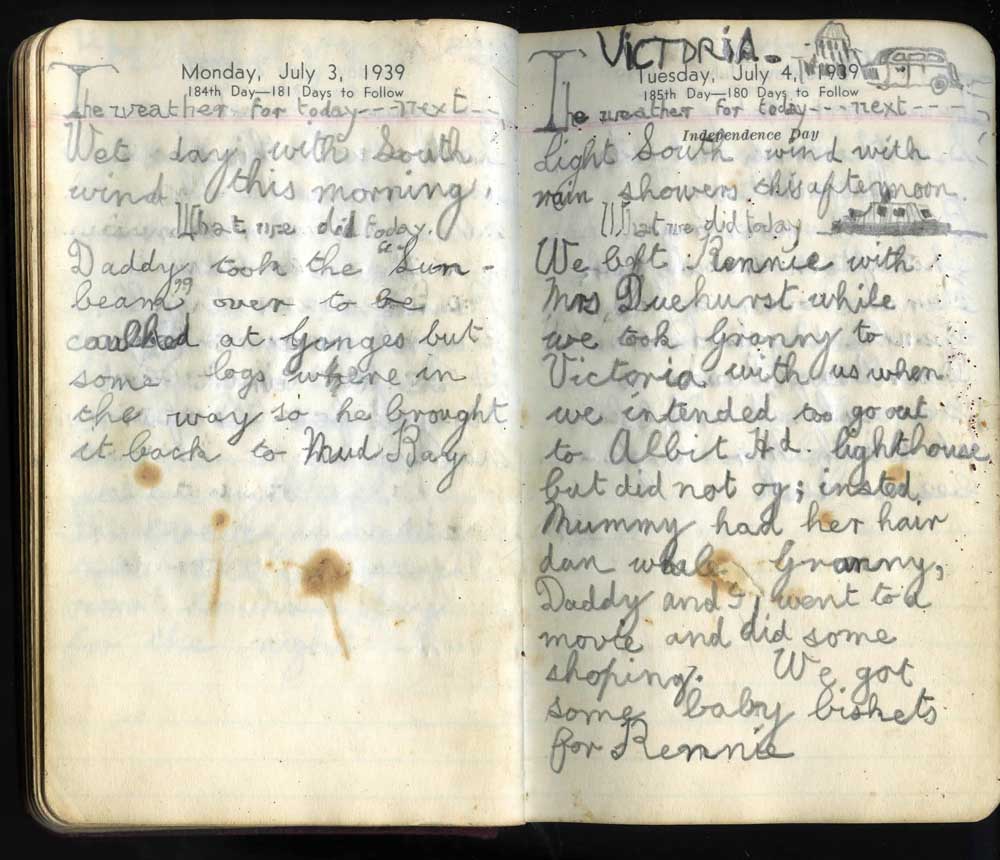 Monday, July 3, 1939
184th Day—181 Days to Follow
The weather for today---next---
Wet day with South
wind this morning.
What we did today.
Daddy took the "Sun-
beam" over to be
caulked at Ganges but
some logs where in
the way so he brought
it back to Mud Bay
VICTORIA.
Tuesday, July 4, 1939
185th Day—180 Days to Follow
The weather for today---next---
Independence Day
Light South wind with
rain showers this afternoon.
What we did today
We left Rennie with
Mrs, Duehurst while
we took Granny to
Victoria with us when
we intended too go out
to Albit Hd. lighthouse
but did not og; insted,
Mummy had her hair
dan while Granny,
Daddy and I, went to a
movie and did some
shoping. We got
some baby biskets
for Rennie